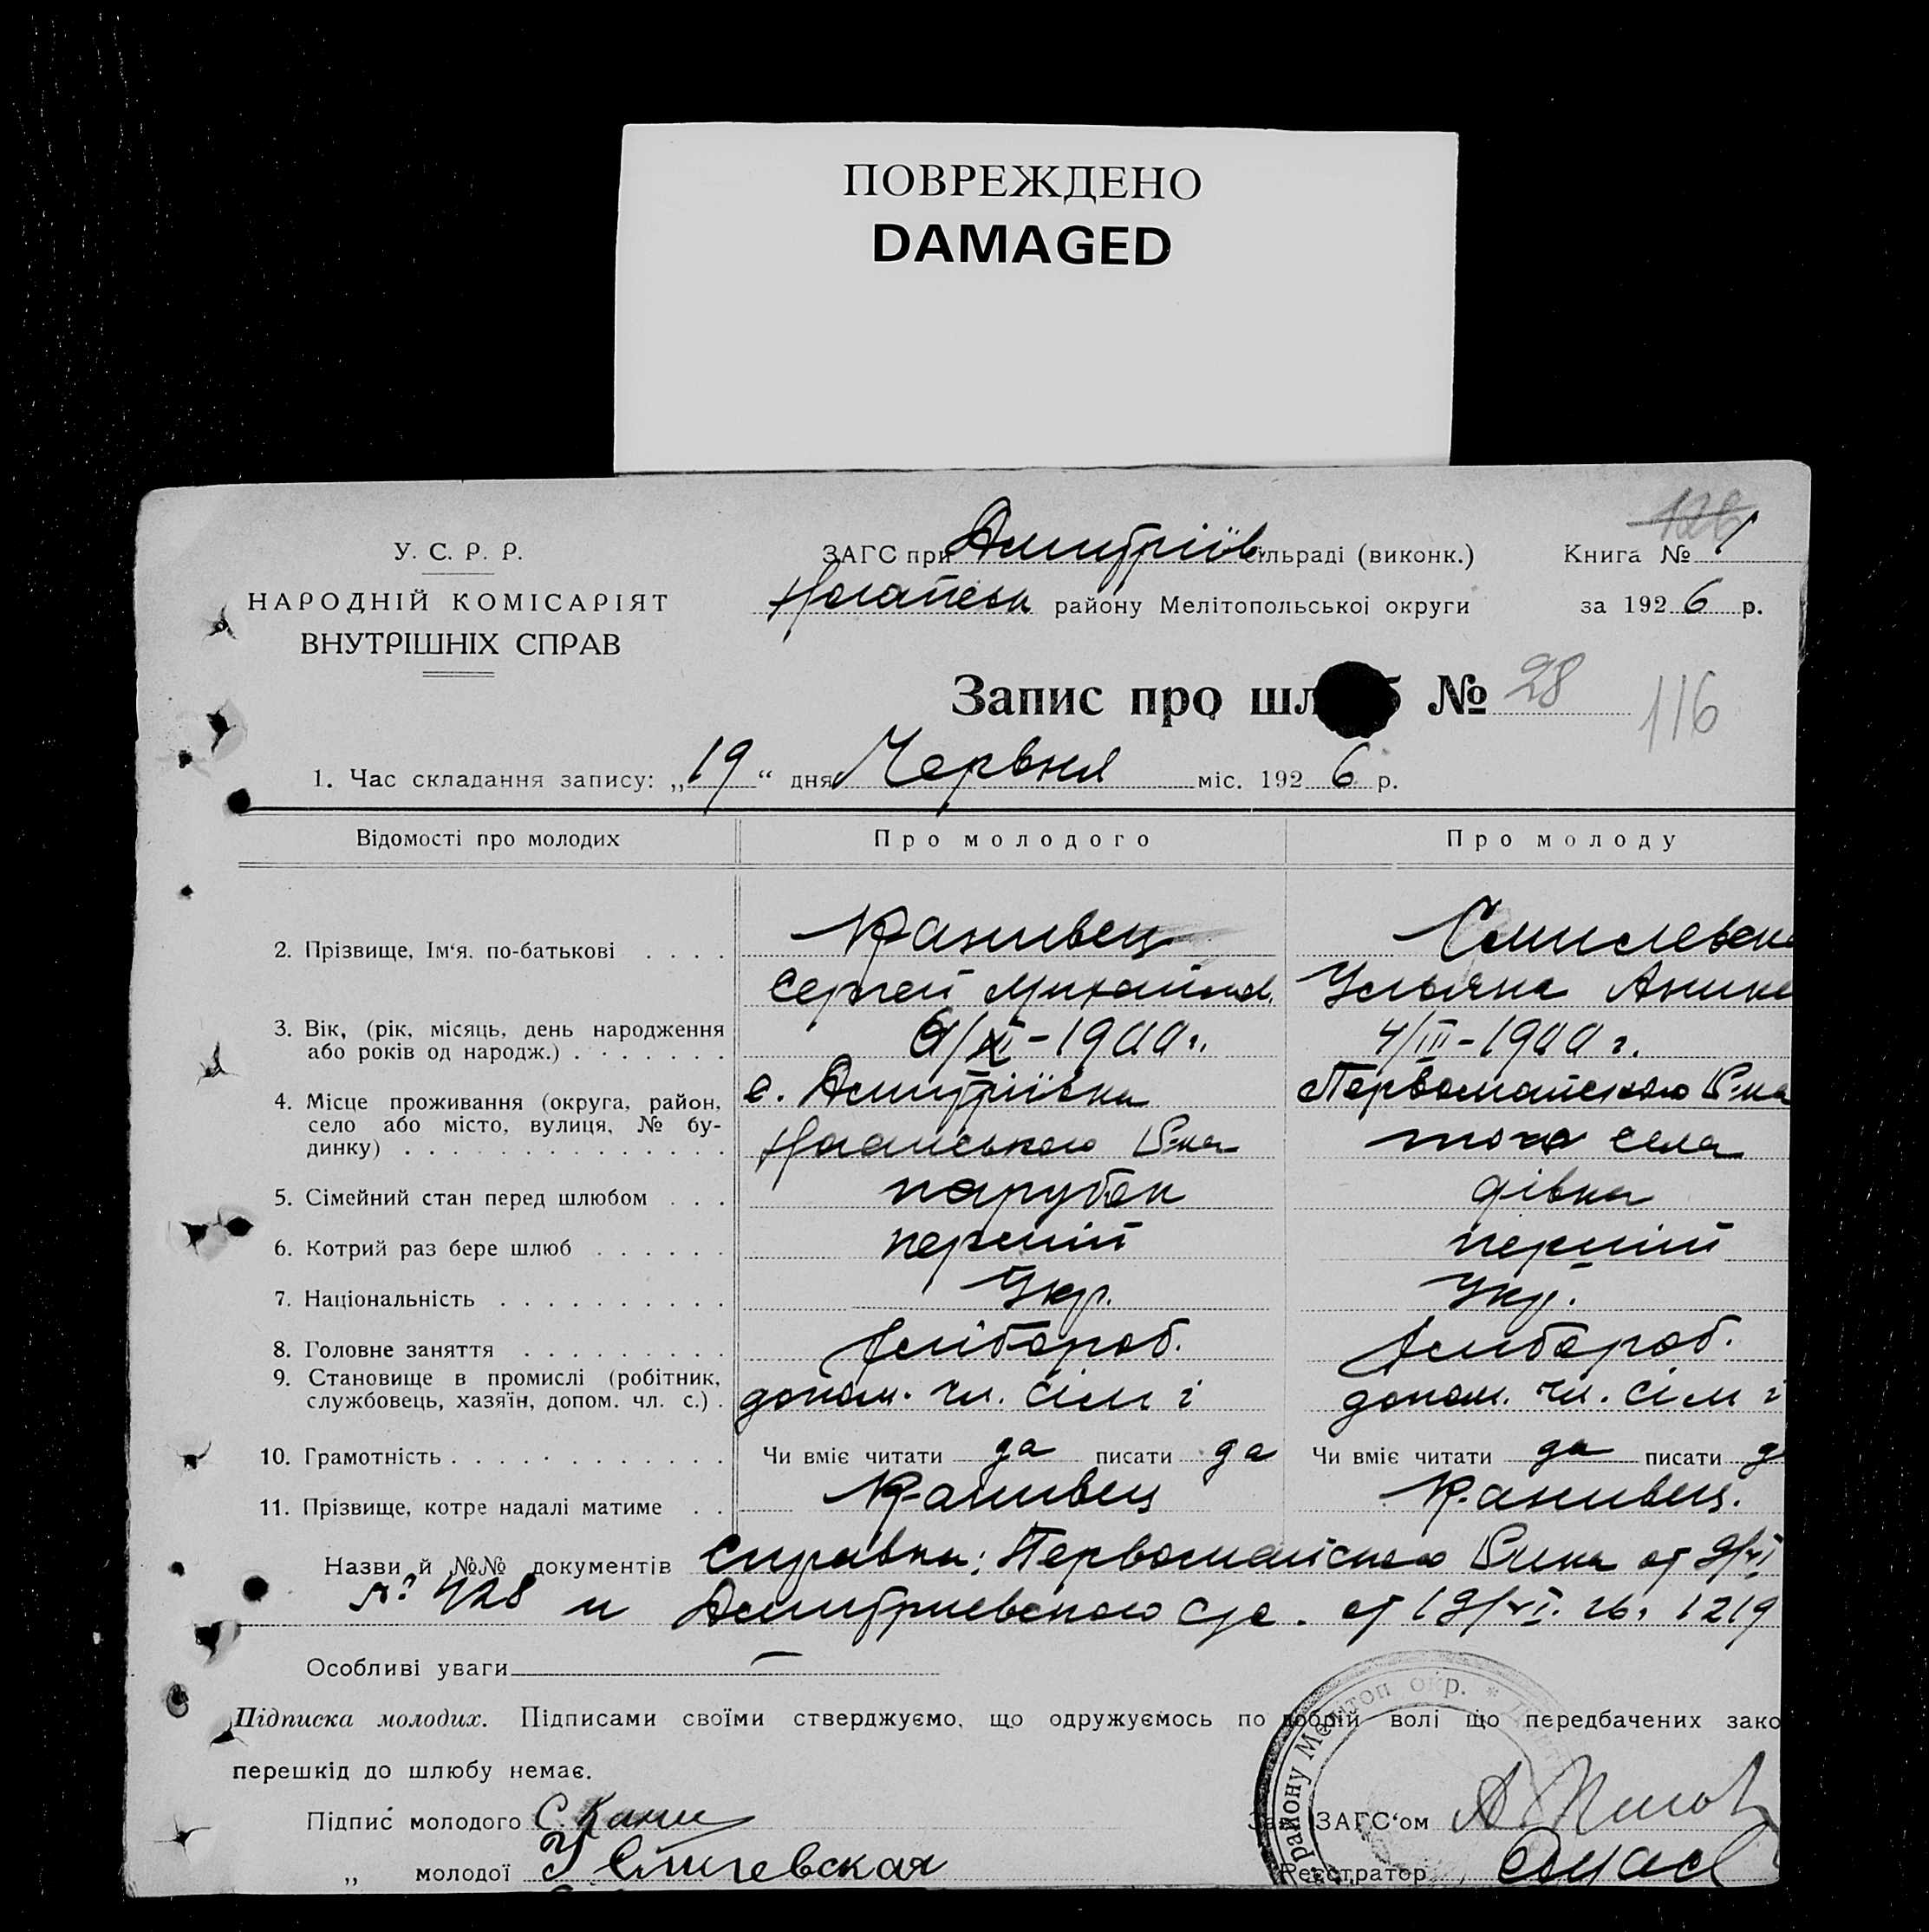 ПОВРЕЖДЕНО
DAMAGED
126
У. С. Р. Р.
НАРОДНІЙ КОМІСАРІЯТ
ВНУТРІШНІХ СПРАВ
ЗАГС при Дмитріїв. сільраді (виконк.)
Ногайськ району Мелітопольської округи
Книга № 1
за 1926 р.
Запис про шл б № 28
116
1. Час складання запису: „19“ дня Червня міс. 1926 р.
Відомості про молодих Про молодого Про молоду
2. Прізвище, Ім‘я, по-батькові . . . . Канивец
Сергей Михайлов. Ульяна
3. Вік, (рік, місяць, день народження
або років од народж.) . . . . . . . 6/XI-1900 г. 4/III-1900 г.
4. Місце проживання (округа, район,
село або місто, вулиця, № бу-
динку) . . . . . . . . . . . . . . с. Дмитріївка Первомайского Р-на
Ногайського Р-на того села
5. Сімейний стан перед шлюбом . . . парубок дівка
6. Котрий раз бере шлюб . . . . . . перший перший
7. Національність . . . . . . . . . . Укр. Укр.
8. Головне заняття . . . . . . . . . Хлібороб. Хлибороб.
9. Становище в промислі (робітник,
службовець, хазяїн, допом. чл. с.) . допом. чл. сім і допом. чл. сім і
10. Грамотність . . . . . . . . . . . . Чи вміє читати да писати да Чи вміє читати да писати д
11. Прізвище, котре надалі матиме . . Канивец Канивец.
Назви й №№ документів Справка: Первомайского Рика от 9/VI
№ 428 и Дмитриевского с/с. от 19/VI. 26. 1219
Особливі уваги —
Підписка молодих. Підписами своїми стверджуємо, що одружуємось по добрій волі що передбачених зако
перешкід до шлюбу немає.
Підпис молодого С. Кани
Зав. ЗАГС‘ом
„ молодої У
Реєстратор
району Мелітоп окр. *